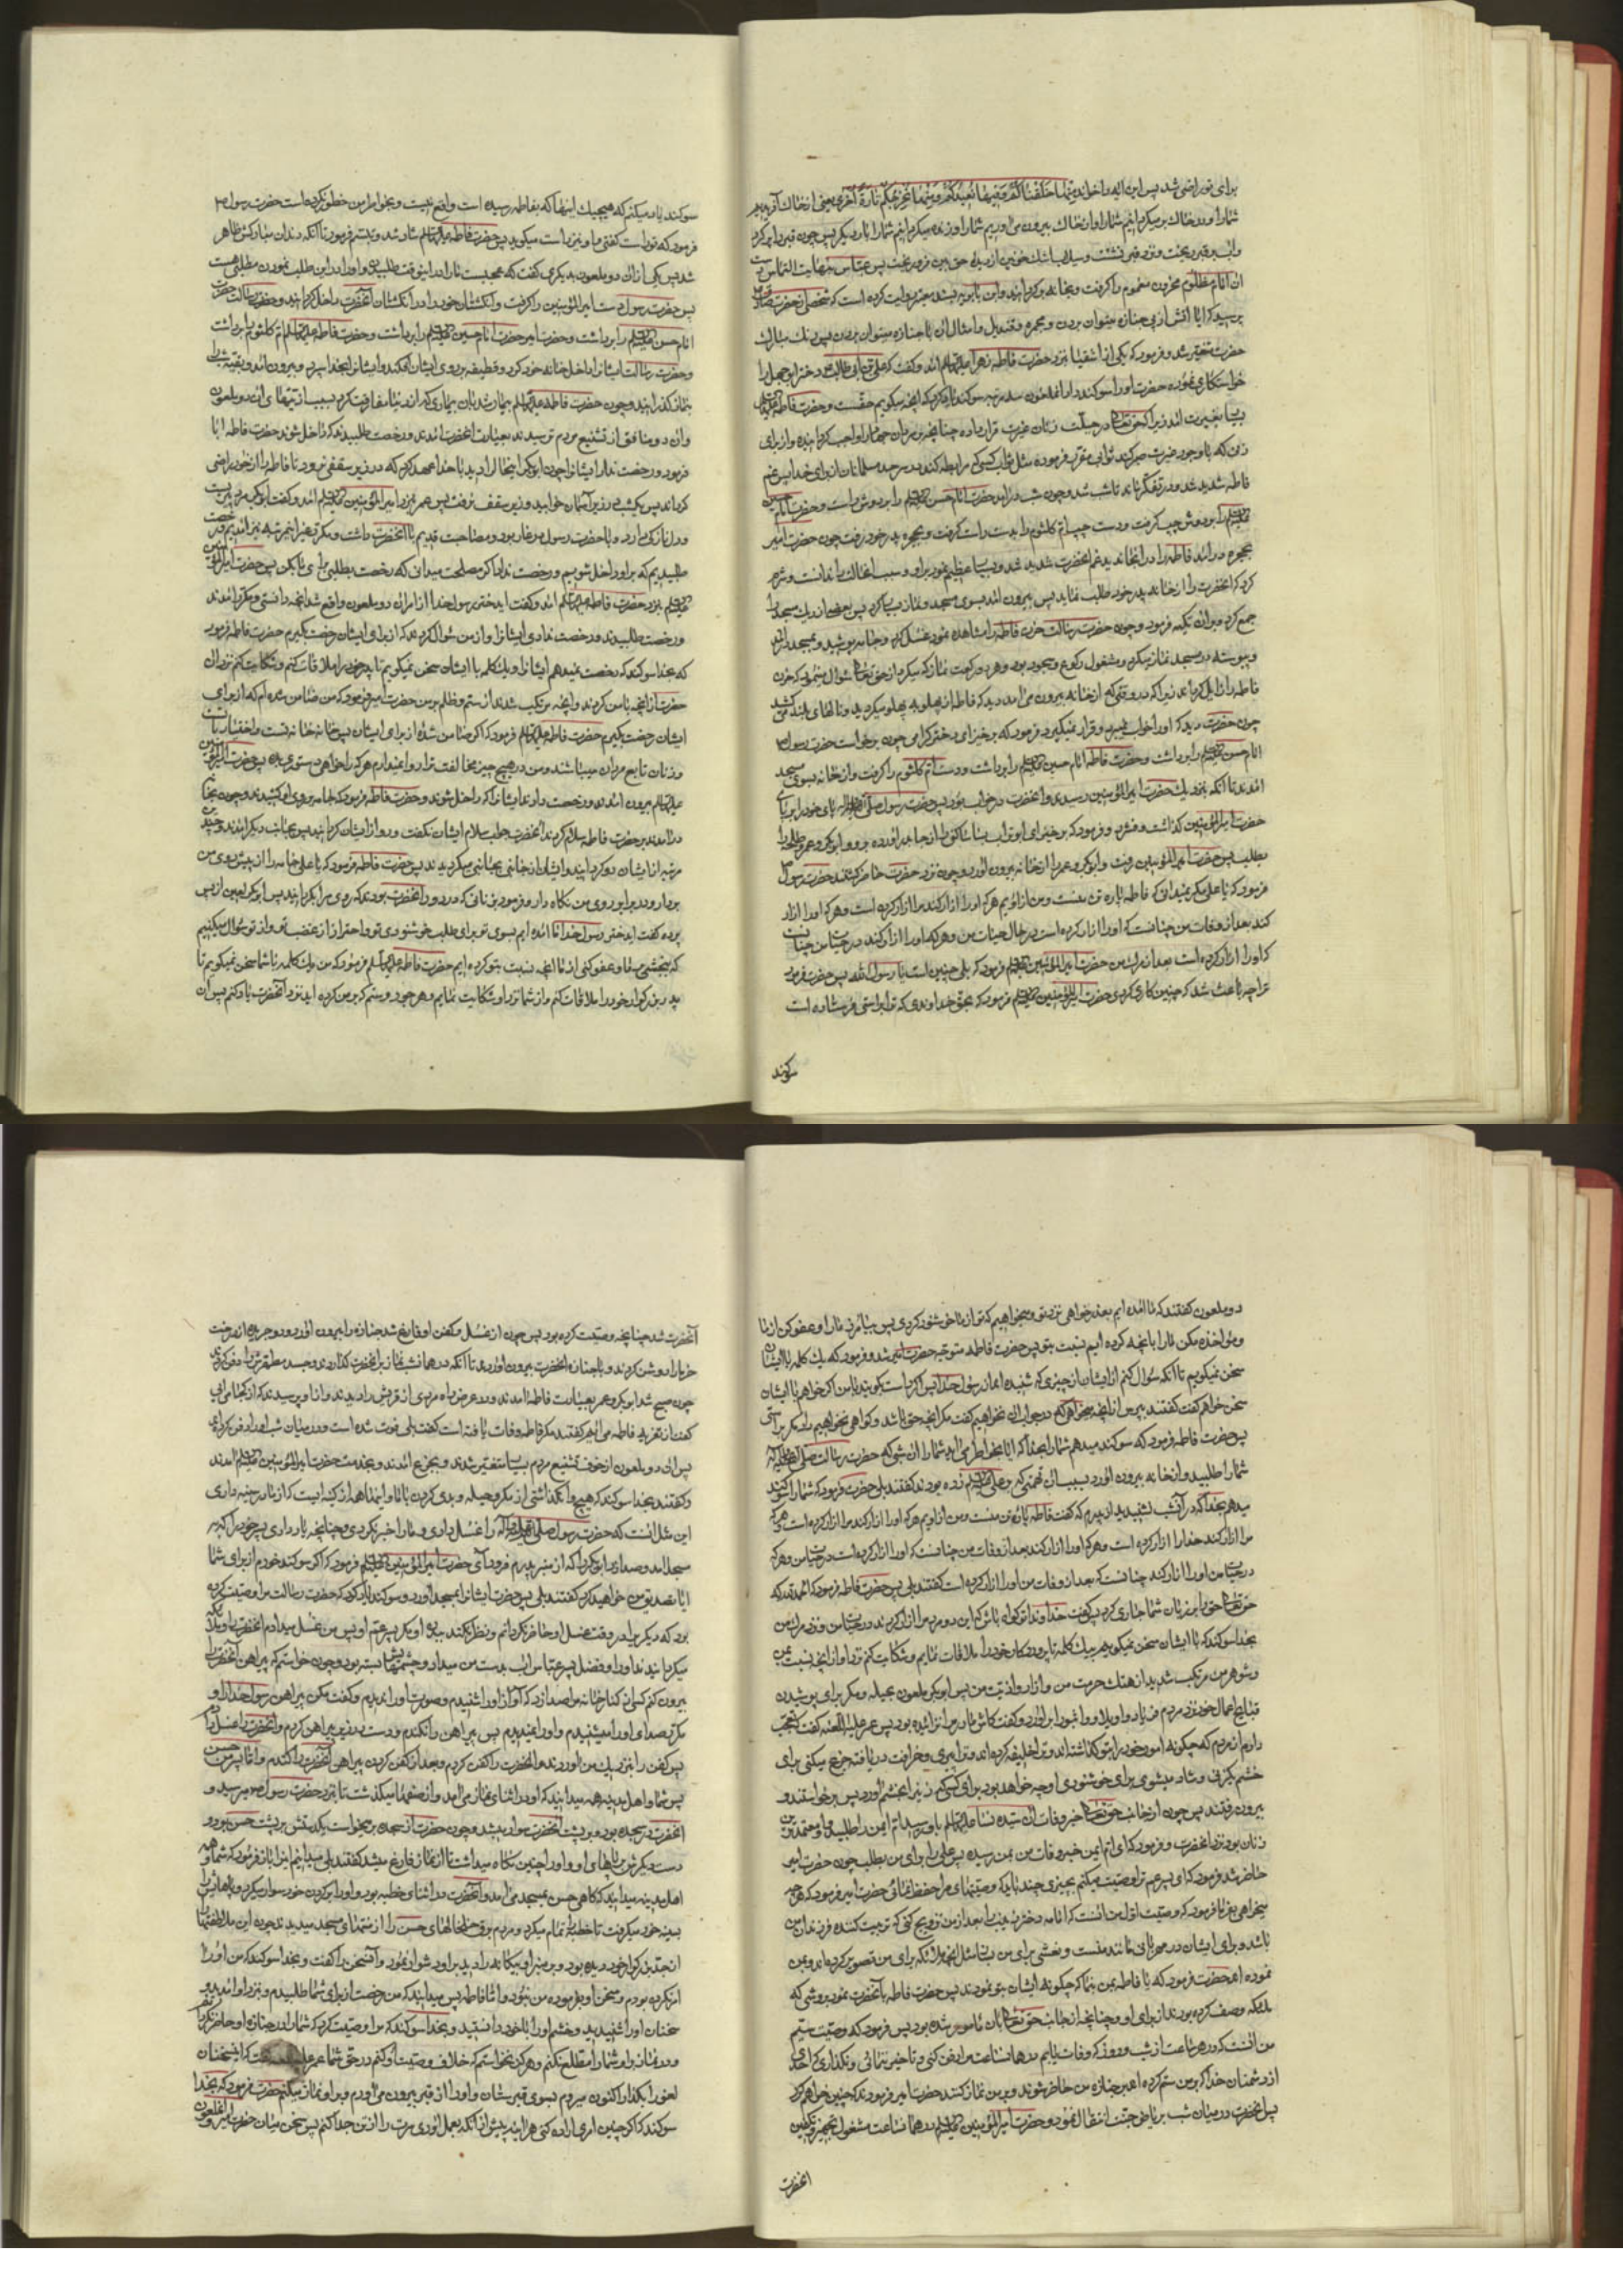 برای تو راضی شد پس این ایه را خواند منها خلقناکم و فیها نعیدکم و منها نخرجکم تارة اخری یعنی از خاک
شمارا و در خاک بر میکردانیم شمارا و از خاک بیرون می اوریم شمارا و زنده میکردانیم شمارا بار دیکر پس چون
پرسید که ایا اتش از پی جنازه میتوان بردن و مجمره و قندیل و امثال ان با جنازه میتوان بردن پس رنک مبارک
حضرت متغیر شد و فرمود که یکی از اشقیا نزد حضرت فاطمه زهرا امد و کفت که علی بن ابی طالب دختر ابو جهل را
خواستکاری نموده حضرت او را سوکند داد ان ملعون سه مرتبه سوکند یاد کرد که انچه میکویم حقست و حضرت فاطمه
بسیار بغیرت امد زیرا که حق تعالی در جبلت زنان غیرت قرار داده چنانچه بر مردان جهاد را واجب کردانیده و از برای
زنی که با وجود غیرت صبر کند ثوابی مقرر فرموده مثل ثواب کسی که مرابطه کند در سرحد مسلمانان از برای خدا پس غم
فاطمه شدید شد و در تفکر ماند تا شب شد و چون شب در امد حضرت امام حسن را بر دوش راست و حضرت امام حسین
را بر دوش چپ کرفت و دست چپ ام کلثوم را بدست راست کرفت و بحجره پدر خود رفت چون حضرت امیر
بحجره در امد فاطمه را در انجا ندید غم انحضرت شدید شد و بسیار عظیم نمود بر او و سبب انحالت را ندانست و شرم
کرد که انحضرت را از خانه پدر خود طلب نماید پس بیرون امد بسوی مسجد و نماز بسیار کرد پس بعضی از ریک مسجد را
جمع کرد و بران تکیه فرمود و چون حضرت رسالت حزن فاطمه را مشاهده نمود غسل کرد و جامه پوشید و بمسجد در امد
و پیوسته در مسجد نماز میکرد و مشغول رکوع و سجود بود و هر دو رکعت نماز که میکرد از حق تعالی سؤال مینمود که حزن
فاطمه را زایل کرداند زیرا که در وقتی که از خانه بیرون می امد دید که فاطمه از پهلو به پهلو میکردید و نالهای بلند می کشید
چون حضرت دید که او را خواب نمیبرد و قرار نمیکیرد فرمود که برخیز ای دختر کرامی چون برخواست حضرت رسول
امام حسن را برداشت و حضرت فاطمه امام حسین را برداشت و دست ام کلثوم را کرفت و از خانه بسوی مسجد
امدند تا انکه بنزدیک حضرت امیر المؤمنین رسیدند و انحضرت در خواب بود پس حضرت رسول پای خود را بر پای
حضرت امیر المؤمنین کذاشت و فشرد و فرمود که برخیز ای ابو تراب بسا ساکنی را از جا بدر اورده برو و ابوبکر و عمر و طلحه را
بطلب پس حضرت امیر المؤمنین رفت و ابوبکر و عمر را از خانه بیرون اورد و چون نزد حضرت حاضر کشتند حضرت رسول
فرمود که یا علی مکر نمیدانی که فاطمه پاره تن منست و من از اویم هر که او را ازار کند مرا ازار کرده است و هر که او را ازار
کند بعد از وفات من چنانست که او را ازار کرده است در حال حیات من و هر که او را ازار کند در حیات من چنانست
که او را ازار کرده است بعد از مرک من حضرت امیر المؤمنین فرمود که بلی چنین است یا رسول الله پس حضرت فرمود
ترا چه باعث شد که چنین کاری کردی حضرت امیر المؤمنین فرمود که بحق خداوندی که ترا براستی فرستاده است
سوکند
سوکند یاد میکنم که هیچیک اینها که بفاطمه رسیده است واقع نیست و بخواطر من خطور نکرده است حضرت رسول
فرمود که تو راست کفتی و او نیز راست میکوید پس حضرت فاطمه شاد شد و تبسم فرمود تا انکه دندان مبارکش ظاهر
شد پس یکی از ان دو ملعون بدیکری کفت که عجبست مارا در اینوقت طلبیدن
پس حضرت رسول دست امیر المؤمنین را کرفت و انکشتان خود را در انکشتان انحضرت داخل کردانید و حضرت رسالت
امام حسن را برداشت و حضرت امیر حضرت امام حسین را برداشت و حضرت فاطمه ام کلثوم را برداشت
و حضرت رسالت ایشانرا داخل خانه خود کرد و قطیفه بر روی ایشان افکند و ایشانرا بخدا سپرد و بیرون امد و بقیه شب را
بنماز کذرانید و چون حضرت فاطمه بیمار شد بان بیماری که از دنیا مفارقت کرد بسبب ستمهای ان دو ملعون
وان دو منافق از تشنیع مردم ترسیدند بعیادت انحضرت امدند و رخصت طلبیدند که داخل شوند حضرت فاطمه ابا
فرمود و رخصت نداد ایشانرا چون ابوبکر اینحال را دید با خدا عهد کرد که در زیر سقفی نرود تا فاطمه را از خود راضی
کرداند پس یکشب در زیر اسمان خوابید و زیر سقف نرفت پس عمر بنزد امیر المؤمنین امد و کفت ابوبکر مرد پیریست
و دل نازکی دارد و با حضرت رسول در غار بود و مصاحبت قدیم با انحضرت داشت
طلبیدیم که بر او داخل شویم و رخصت نداد اکر مصلحت میدانی که رخصت بطلبی برای ما بکن پس حضرت امیر المؤمنین
بنزد حضرت فاطمه امد و کفت ای دختر رسول خدا از امر ان دو ملعون واقع شد انچه دانستی و مکرر امدند
و رخصت طلبیدند و رخصت ندادی ایشانرا و از من سؤال کردند که از برای ایشان رخصت بکیرم حضرت فاطمه فرمود
که بخدا سوکند که رخصت نمیدهم ایشانرا و یک کلمه با ایشان سخن نمیکویم تا پدر خود را ملاقات کنم و شکایت کنم نزد ان
حضرت از انچه با من کردند و انچه مرتکب شدند از ستم و ظلم بر من حضرت امیر فرمود که من ضامن شده ام که از برای
ایشان رخصت بکیرم حضرت فاطمه فرمود که اکر ضامن شدهٔ از برای ایشان پس خانه خانه تست و اختیار با تست
و زنان تابع مردان میباشند و من در هیچ چیز مخالفت ترا روا نمیدارم هر که را خواهی دستوری ده پس حضرت امیر المؤمنین
بیرون امد و رخصت داد ایشانرا که داخل شوند و حضرت فاطمه فرمود که جامه بر روی او کشیدند و چون بخانه
در امدند بر حضرت فاطمه سلام کردند انحضرت جواب سلام ایشان نکفت و رو از ایشان کردانید پس بجانب دیکر امدند و چند
مرتبه از ایشان رو کردانید و ایشان از جانبی بجانبی میکردیدند پس حضرت فاطمه فرمود که یا علی جامه را از پیش روی من
بردار و در برابر روی من نکاه دار و فرمود بزنانی که در دور انحضرت بودند که روی مرا بکردانید پس ابوبکر لعین از پس
پرده کفت ای دختر رسول خدا ما امده ایم بسوی تو برای طلب خوشنودی تو و احتراز از غضب تو و از تو سؤال میکنیم
که ببخشی مارا و عفو کنی از ما انچه نسبت بتو کرده ایم حضرت فاطمه فرمود که من یک کلمه با شما سخن نمیکویم تا
پدر بزرکوار خود را ملاقات کنم و از شما نزد او شکایت نمایم و هر جور و ستم که بر من کرده اید نزد انحضرت یاد کنم پس ان
دو ملعون کفتند که ما امده ایم بعذر خواهی نزد تو و میخواهیم که تو از ما خوشنود کردی پس بیامرز مارا و عفو کن از ما
و مؤاخذه مکن مارا بانچه کرده ایم نسبت بتو پس حضرت فاطمه متوجه حضرت امیر شد و فرمود که یک کلمه با ایشان
سخن نمیکویم تا انکه سؤال کنم از ایشان از چیزی که شنیده اند از رسول خدا پس اکر راست کویند با من اکر خواهم با ایشان
سخن خواهم کفت کفتند بپرس از انچه میخواهی که در جواب ان نخواهیم کفت مکر انچه حق باشد و کواهی نخواهیم داد مکر براستی
پس حضرت فاطمه فرمود که سوکند میدهم شمارا بخدا که ایا بخاطر می اید شمارا ان شبی که حضرت رسالت
مرا ازار کند خدا را ازار کرده است و هر که او را ازار کند بعد از وفات من چنانست که او را ازار کرده است در حیات من و هر که
در حیات من او را ازار کند چنانست که بعد از وفات من او را ازار کرده است کفتند بلی پس حضرت فاطمه فرمود که الحمد لله که
حق تعالی حق را بر زبان شما جاری کرد پس کفت خداوندا تو کواه باش که این دو مرد مرا ازار کردند در حیات من و نزد مردن من
بخدا سوکند که با ایشان سخن نمیکویم یک کلمه تا پروردکار خود را ملاقات نمایم و شکایت کنم نزد او از انچه نسبت بمن
و شوهر من مرتکب شدید از هتک حرمت من و ازار و اذیت من پس ابوبکر ملعون بحیله و مکر برای پوشیدن
قبایح اعمال خود نزد مردم فریاد واویلا و واثبورا بر اورد و کفت کاش مادر مرا نزائیده بود پس عمر علیه اللعنه کفت که عجب
دارم از مردم که چکونه امور خود را بتو کذاشته اند و ترا خلیفه کرده اند و تو پیری و خرافت دریافته جزع میکنی برای
خشم یک زنی و شاد میشوی برای خوشنودی او چه خواهد بود برای کسی که زنی را بخشم اورد پس برخواستند و
بیرون رفتند پس چون از جانب حق تعالی خبر وفات ان سیده نساء باو رسید ام ایمن را طلبید و او معتمدترین
زنان بود نزد انحضرت و فرمود که ای ام ایمن خبر وفات من بمن رسیده پس علی را برای من بطلب چون حضرت امیر
حاضر شد فرمود که ای پسر عم ترا وصیت میکنم بچیزی چند باید که وصیتهای مرا حفظ نمائی حضرت امیر فرمود که هر چه
میخواهی بفرما فرمود که وصیت اول من انست که امامه دختر زینب را بعد از من تزویج کنی که تربیت کننده فرزندان من
باشد و برای ایشان در مهربانی مانند منست و نعشی برای من بساز مثل انچه ملائکه برای من تصویر کرده اند و بمن
نموده اند حضرت فرمود که یا فاطمه بمن بنما که چکونه ایشان بتو نمودند پس حضرت فاطمه بانحضرت نمود بروشی که
ملائکه وصف کرده بودند از برای او و چنانچه از جانب حق تعالی بان مامور شده بود پس فرمود که وصیت سیم
من انست که در هر ساعت از شب و روز که وفات یابم در همان ساعت مرا دفن کنی و تاخیر ننمائی و نکذاری که احدی
از دشمنان خدا که بر من ستم کرده اند بر جنازه من حاضر شوند و بر من نماز کنند حضرت امیر فرمود که چنین خواهم کرد
پس انحضرت در میان شب بریاض جنت انتقال نمود و حضرت امیر المؤمنین در همان ساعت مشغول تجهیز و تکفین
انحضرت
انحضرت شد چنانچه وصیت کرده بود پس چون از غسل و کفن او فارغ شد جنازه را بیرون اورد و جریده از درخت
خرما را روشن کردند و با جنازه انحضرت بیرون اوردند تا انکه در همان شب نماز بر انحضرت کذاردند و جسد مطهرش را دفن کردند
چون صبح شد ابوبکر و عمر بعیادت فاطمه امدند و در عرض راه مردی از قریش را دیدند و از او پرسیدند که از کجا می ایی
کفت از تعزیه فاطمه می ایم کفتند مکر فاطمه وفات یافته است کفت بلی فوت شده است و در میان شب او را دفن کردند
پس ان دو ملعون از خوف تشنیع مردم بسیار متغیر شدند و بجزع امدند و بخدمت حضرت امیر المؤمنین امدند
و کفتند بخدا سوکند که هیچ وا نکذاشتی از مکر و حیله و بدی کردن با ما و اینها همه از کینه ایست که از ما در سینه داری
این مثل انست که حضرت رسول را غسل دادی و مارا خبر نکردی و چنانچه یاد دادی پسر خود را که به
مسجد امد و صدا زد ابوبکر را که از منبر پدرم فرود ای حضرت امیر المؤمنین فرمود که اکر سوکند خورم از برای شما
ایا تصدیق من خواهید کرد کفتند بلی پس حضرت ایشانرا بمسجد اورد و سوکند یاد کرد که حضرت رسالت مرا وصیت کرده
بود که دیکری را در وقت غسل او حاضر نکردانم و نظر نکند ببدن او مکر پسر عم او پس من غسل میدادم انحضرت را و ملائکه
میکردانیدند او را و فضل پسر عباس اب بدست من میداد و چشمهایش بسته بود و چون خواستم که پیراهن انحضرت را
بیرون کنم کسی از کنار خانه مرا صدا زد که آواز او را شنیدم و صورت او را ندیدم و کفت مکن پیراهن رسول خدا را و
مکرر صدای او را میشنیدم و او را نمیدیدم پس پیراهن را نکندم و دست در زیر پیراهن کردم و انحضرت را غسل دادم
پس کفن را بنزدیک من اوردند و انحضرت را کفن کردم و بعد از کفن کردن پیراهن انحضرت را کندم و اما پسر من حسن
پس شما و اهل مدینه همه میدانید که او در اثنای نماز می امد و از صفها میکذشت تا بنزد حضرت رسول میرسید و
انحضرت در سجده بود و بر پشت انحضرت سوار میشد و چون حضرت از سجده بر میخواست یکدستش بر پشت حسن بود و
دست دیکرش بر پاهای او و او را چنین نکاه میداشت تا از نماز فارغ میشد کفتند بلی میدانیم
اهل مدینه میدانید که کاهی حسن بمسجد می امد و انحضرت در اثنای خطبه بود و او را بر کردن خود سوار میکرد و پاهایش را
بسینه خود میکرفت تا خطبه را تمام میکرد و مردم برق خلخالهای حسن را از منتهای مسجد میدیدند چون این ملاطفتها
از جد بزرکوار خود دیده بود و بر منبر او بیکانه را دید بر او دشوار نمود و آن سخن را کفت و بخدا سوکند که من او را
امر نکرده بودم و سخن او بفرموده من نبود و اما فاطمه پس میدانید که من رخصت از برای شما طلبیدم و بنزد او امدید و
سخنان او را شنیدید و خشم او را با خود دانستید و بخدا سوکند که مرا وصیت کرد که شمارا در جنازه او حاضر نکردانم
و در نماز او شمارا مطلع نکنم و هرکز نخواستم که خلاف وصیت او کنم در حق شما عمر
لغو را بکذار اکنون میروم بسوی قبرستان و او را از قبر بیرون می اورم و بر او نماز میکنم حضرت فرمود که بخدا
سوکند که اکر چنین امری اراده کنی هر اینه پیش از انکه بعمل اوری سرت را از تن جدا کنم پس سخن میان حضرت امیر و ان ملعون